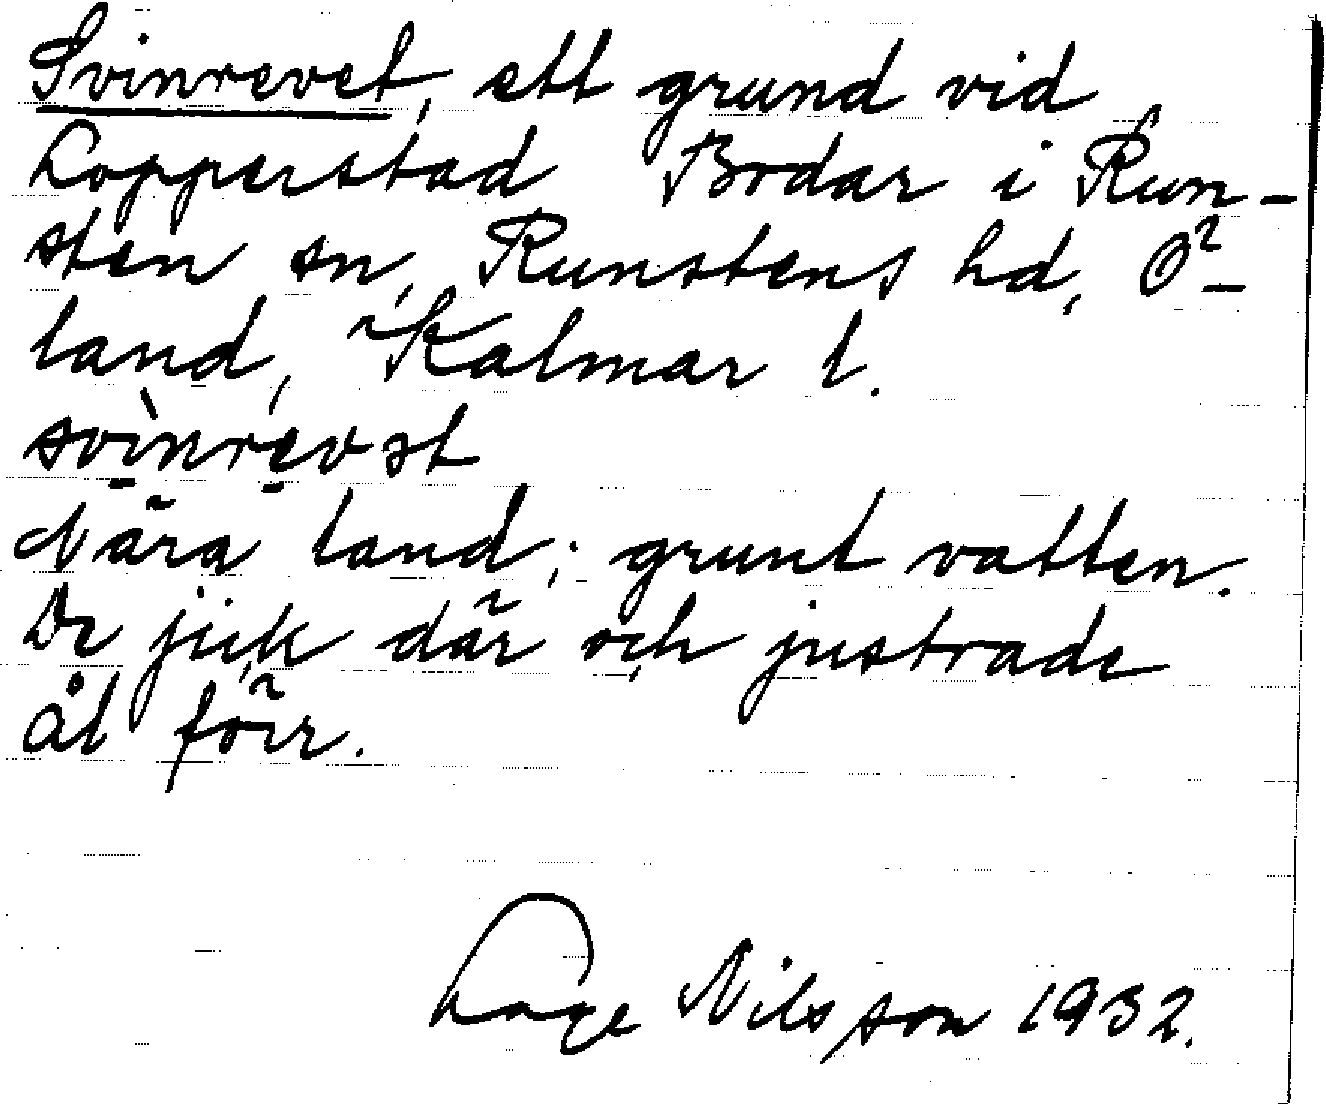 Svinrevet, ett grund vid
Lopperstad Bodar i Run-
sten sn, Runstens hd, Ö-
land, Kalmar l.
svìnrevət
Nära land; grunt vatten.
De jick där och justrade
ål förr.
Lage Nilsson 1932.